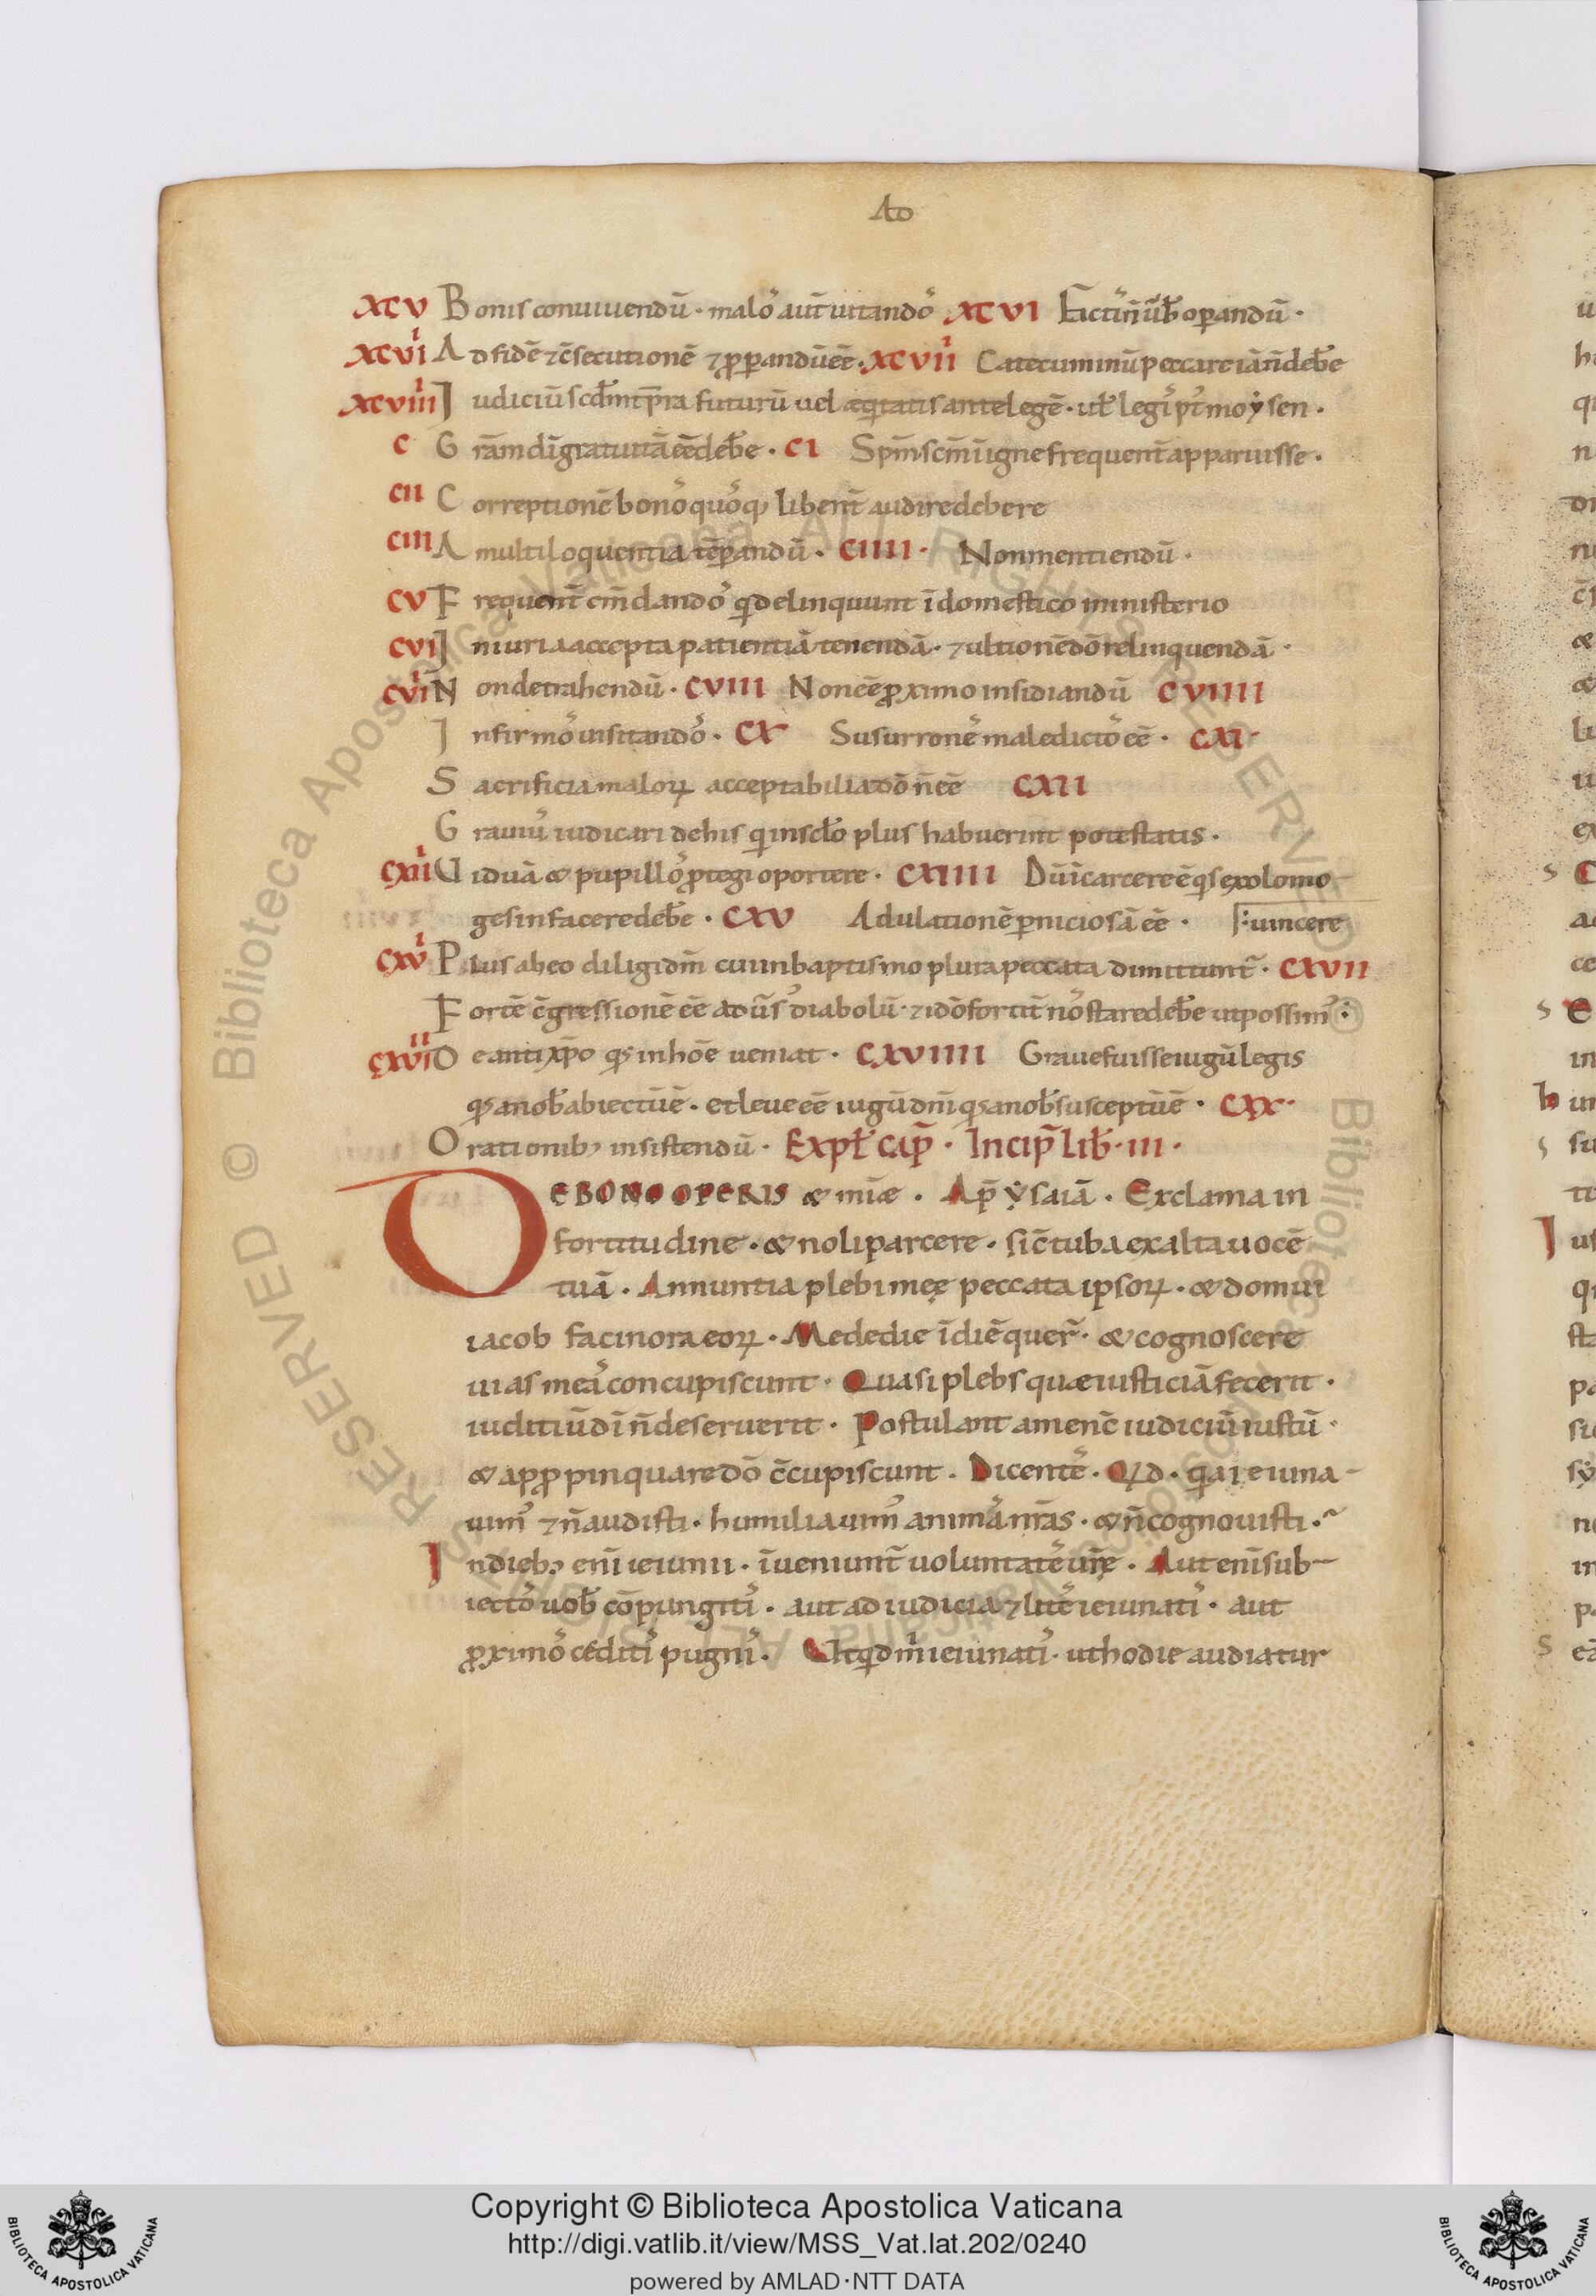 Ad
XCV Bonis conuiuendū · maloˢ aut̄ uitandoˢ XCVI Factiˢ n̄ ūb̄ oꝑandū ·
XCVII Ad fidē ⁊ c̄secutionē ⁊ ꝓꝑandū eē · XCVIII Catecuminū peccare iā n̄ deb̄e
XCVIIII Iudiciū scd̄m tp̄ra futurū uel æq̇tatis ante legē · ut̄ legiˢ p̄ moẏsen ·
C Grām dī gratuitā eē deb̄e · CI Sp̄m sc̄m ī igne frequent̄ apparuisse ·
CII Correptionē bonoˢ quoˢq; libent̄ audire debere
CIII A multiloquentia tēꝑandū · CIIII · Non mentiendū ·
CV Frequent̄ em̄dandoˢ q̇ delinquunt ī domestico ministerio
CVI Iniuria accepta patientiā tenendā · ⁊ ultionē dō relinquendā ·
CVII Non detrahendū · CVIII Non eē ꝓximo insidiandū CVIIII
Infirmoˢ uisitandoˢ · CX Susurroneˢ maledictoˢ eē · CXI ·
Sacrificia maloꝝ acceptabilia dō n̄ eē CXII
Grauiuˢ iudicari de his q̇ in sclo plus habuerint potestatis ·
CXIII Uiduā & pupilloˢ ꝓtegi oportere · CXIIII Dū ī carcere ē q̇s exolomo
gesin facere deb̄e · CXV Adulationē ꝑniciosā eē · uincere
CXVI Plus ab eo diligi dm̄ cui in baptismo plura peccata dimittunt̄ · CXVII
Fortē c̄gressionē eē aduˢ diabolū · ⁊ idō fortit̄ noˢ stare deb̄e ut possimˢ
CXVIII De antixp̄o q̇s in hōe ueniat · CXVIIII Graue fuisse iugū legis
q̇s a nob̄ abiectū ē · et leue eē iugū dn̄i q̇s a nob̄ susceptū ē · CXX ·
Orationib; insistendū · Expl̄ cap̄ · Incip̄ lib̄ · III ·
DE BONO OPERIS & mīæ · Ap̄ ẏsaiā · Exclama in
fortitudine · & noli parcere · sic̄ tuba exalta uocē
tuā · Annuntia plebi meę peccata ipsoꝝ · & domui
iacob facinora eoꝝ · Me de die ī diē quer̄ · & cognoscere
uias meaˢ concupiscunt · Quasi plebs quæ iusticiā fecerit ·
iuditiū dī n̄ deseruerit · Postulant a me nc̄ iudiciū iustū ·
& appropinquare dō c̄cupiscunt · Dicenteˢ · Qd · q̇a ieiuna
uimˢ ⁊ n̄ audisti · humiliauimˢ animaˢ nr̄as · & n̄ cognouisti ·
In dieb; enī ieiunii · īueniunt̄ uoluntateˢ ur̄e · Aut enī sub
iectoˢ uob̄ cōpungitiˢ · aut ad iudicia ⁊ liteˢ ieiunatiˢ · aut
ꝓximoˢ ceditiˢ pugniˢ · Ut q̇d m̄ ieiunatiˢ · ut hodie audiatur
Copyright © Biblioteca Apostolica Vaticana
http://digi.vatlib.it/view/MSS_Vat.lat.202/0240
powered by AMLAD·NTT DATA